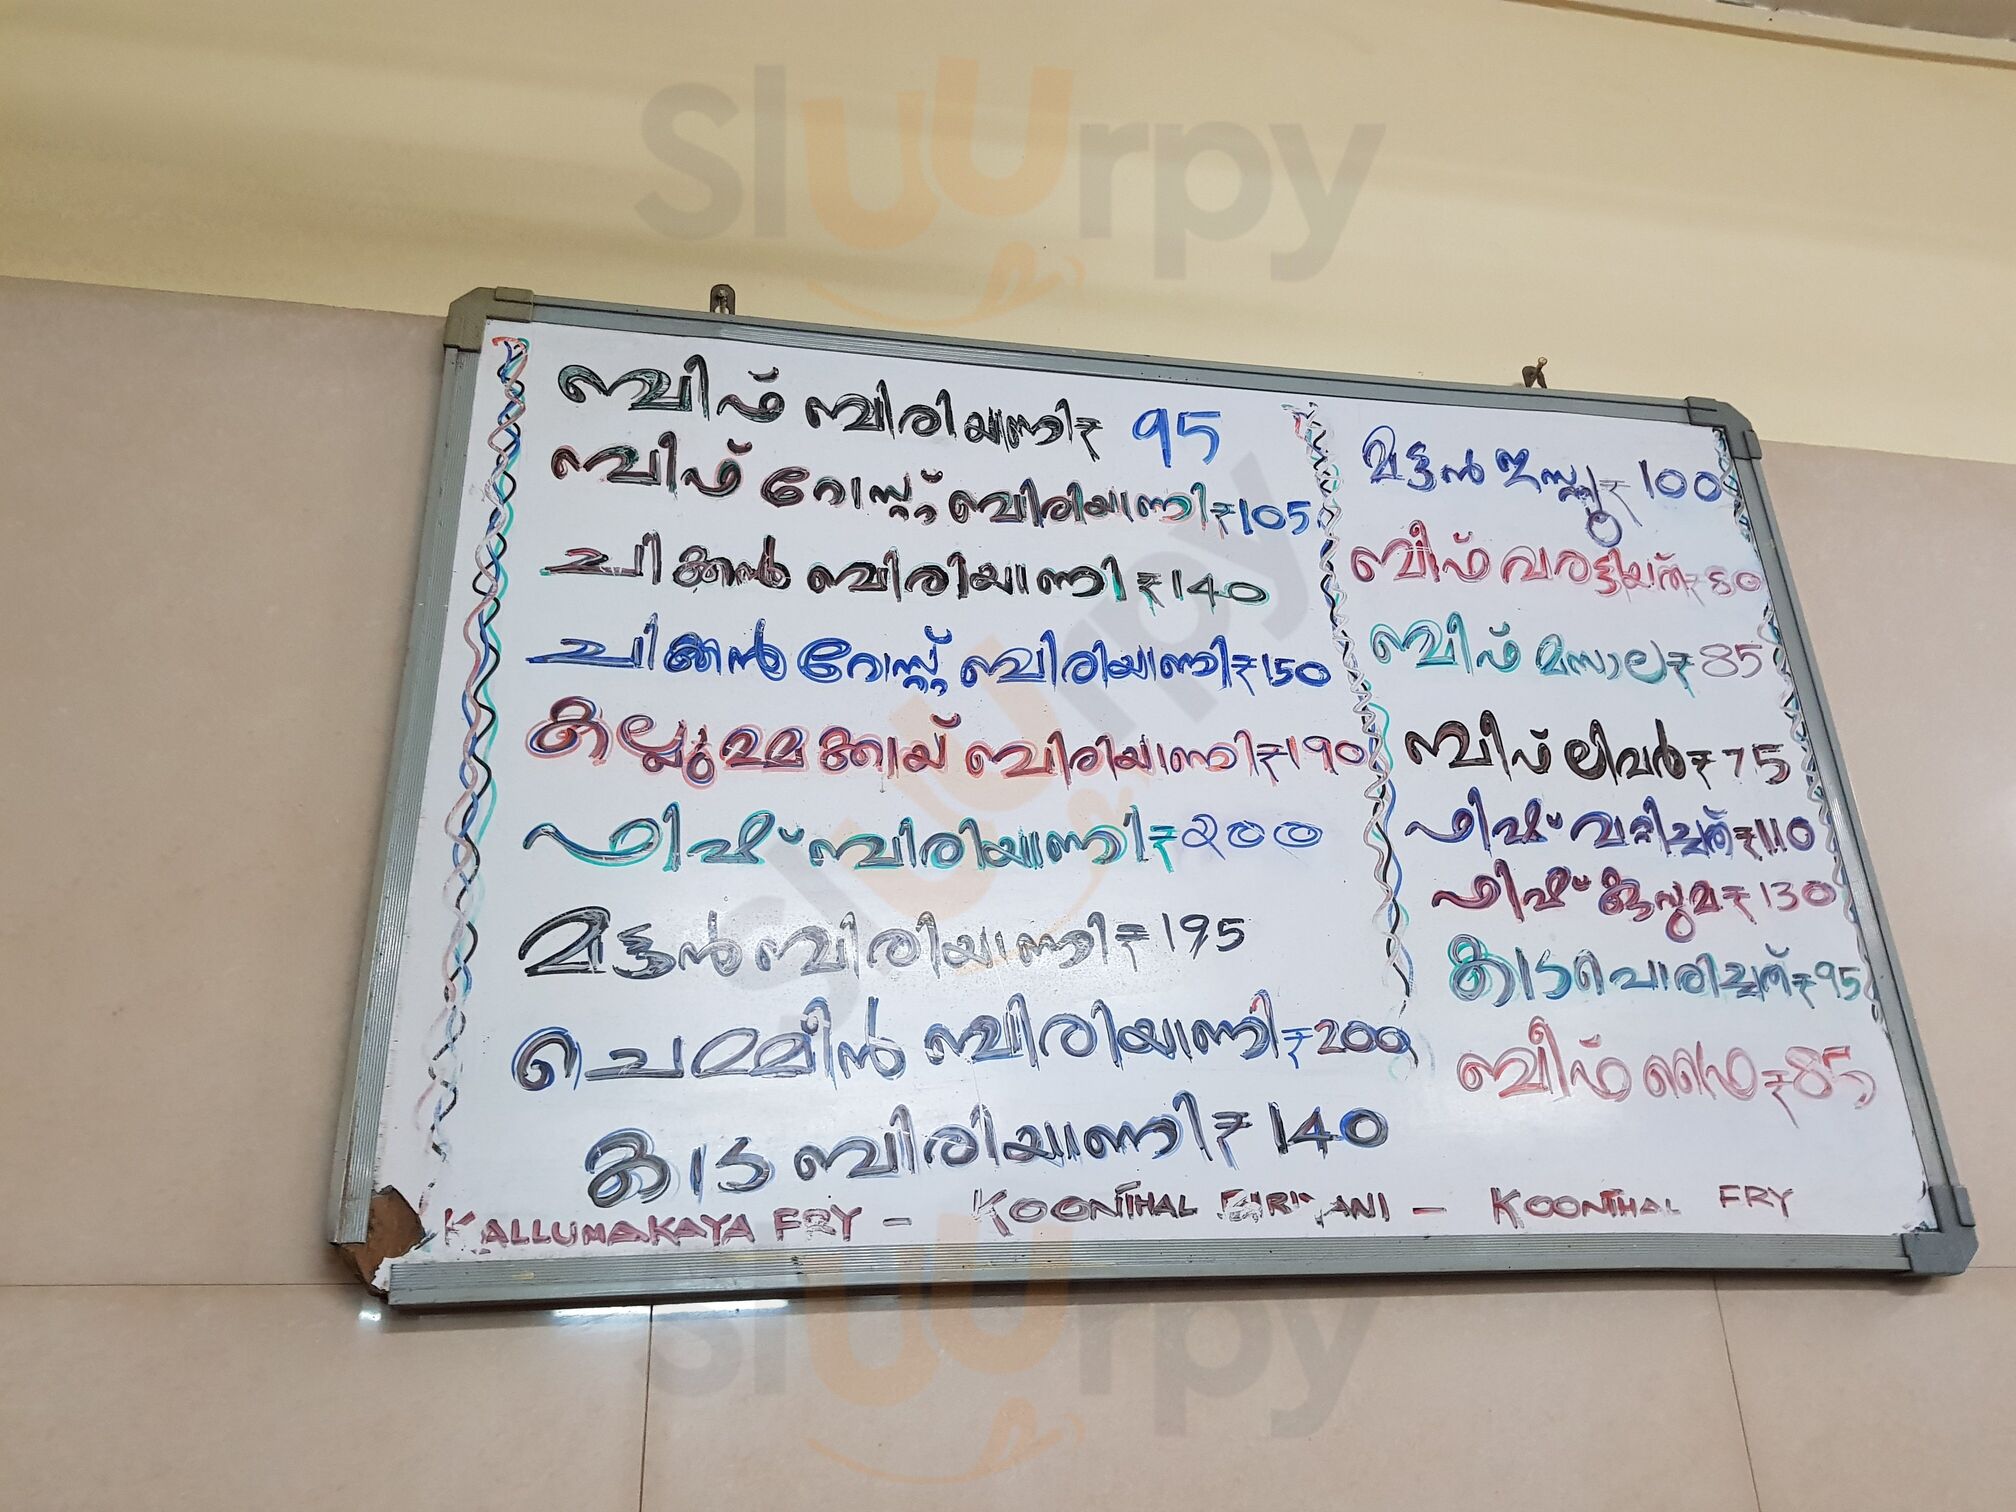 Sluurpy
ബീഫ് ബിരിയാണി ₹ 95
ബീഫ് റോസ്റ്റ് ബിരിയാണി ₹ 105
ചിക്കൻ ബിരിയാണി ₹ 140
ചിക്കൻ റോസ്റ്റ് ബിരിയാണി ₹ 150
കല്ലുമ്മക്കായ് ബിരിയാണി ₹ 190
ഫിഷ് ബിരിയാണി ₹ 200
മട്ടൻ ബിരിയാണി ₹ 195
ചെമ്മീൻ ബിരിയാണി ₹ 200
കാട ബിരിയാണി ₹ 140
മട്ടൻ ഇസ്റ്റൂ ₹ 100
ബീഫ് വരട്ടിയത് ₹ 80
ബീഫ് മസാല ₹ 85
ബീഫ് ലിവർ ₹ 75
ഫിഷ് വറ്റിച്ചത് ₹ 110
ഫിഷ് കുറുമ ₹ 130
കാട പൊരിച്ചത് ₹ 95
ബീഫ് ഫ്രൈ ₹ 85
KALLUMAKAYA FRY - KOONTHAL BIRIYANI - KOONTHAL FRY
Sluurpy
Sluurpy